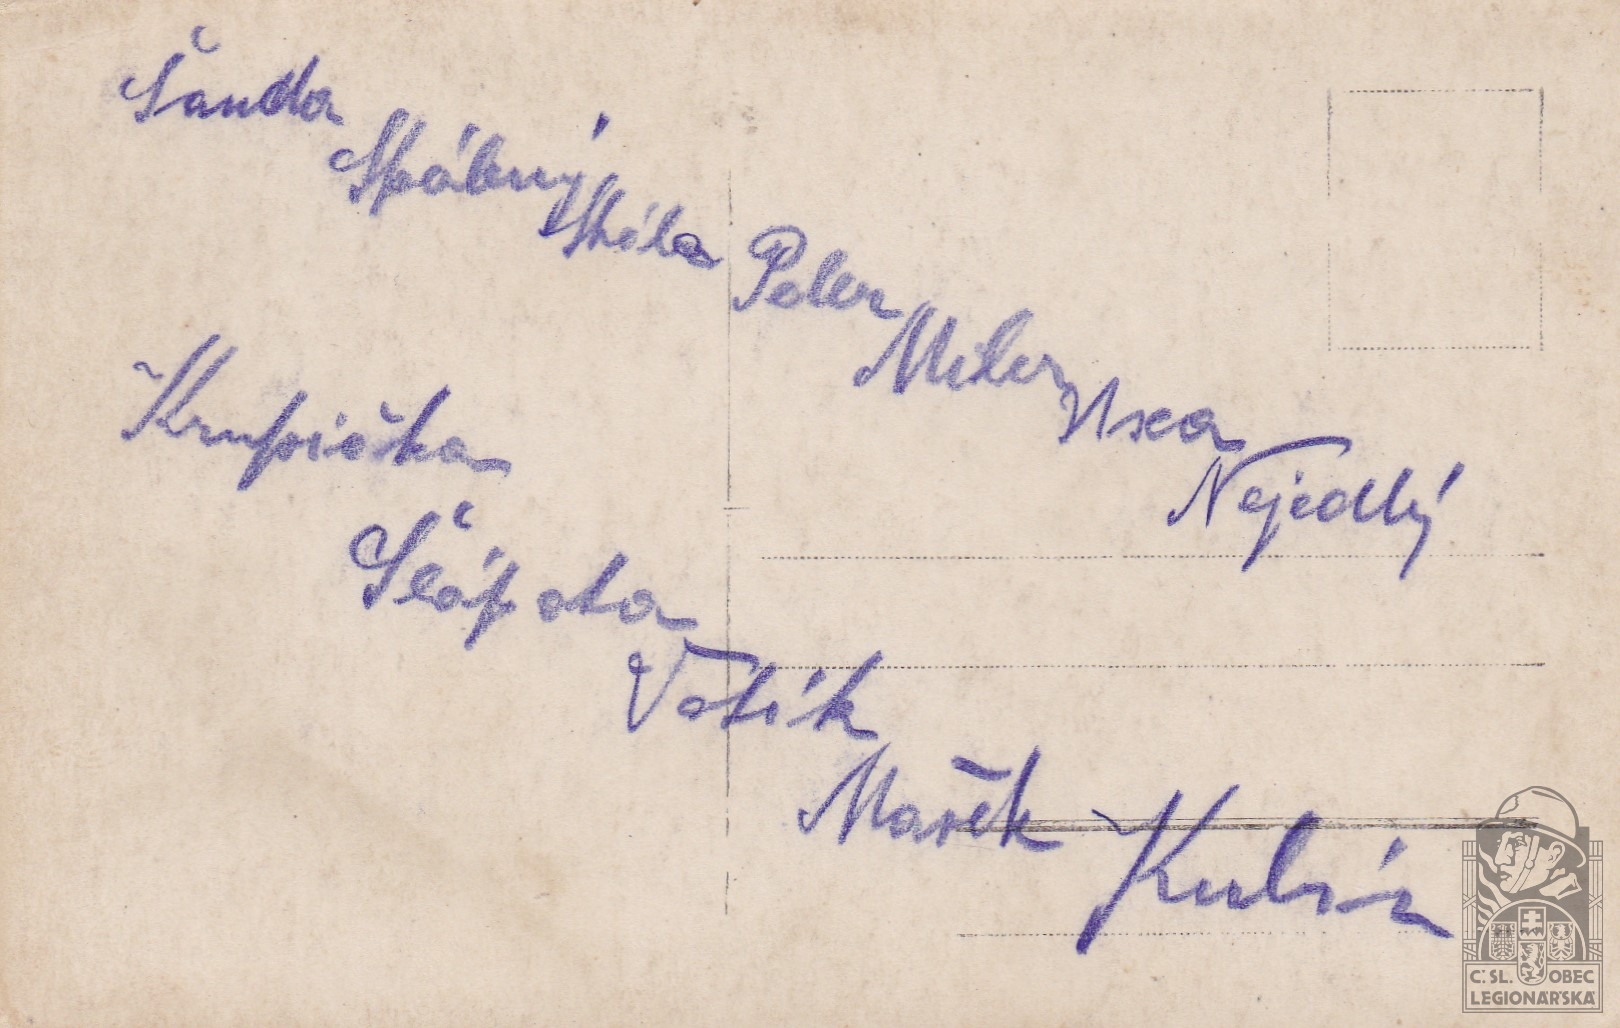 Šanda
Stálený
Skála
Peler
Miler
Nejedlý
Krupička
Šlápota
Votík
Mařek
Kubín
Č. SL. OBEC
LEGIONÁŘSKÁ